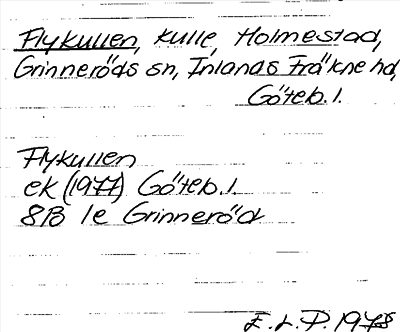 Flykullen, kulle, Holmestad,
Grinneröds sn, Inlands Fräkne hd,
Göteb. l.
Flykullen
ek (1977) Göteb. l.
8B 1e Grinneröd
E. L. P. 1978